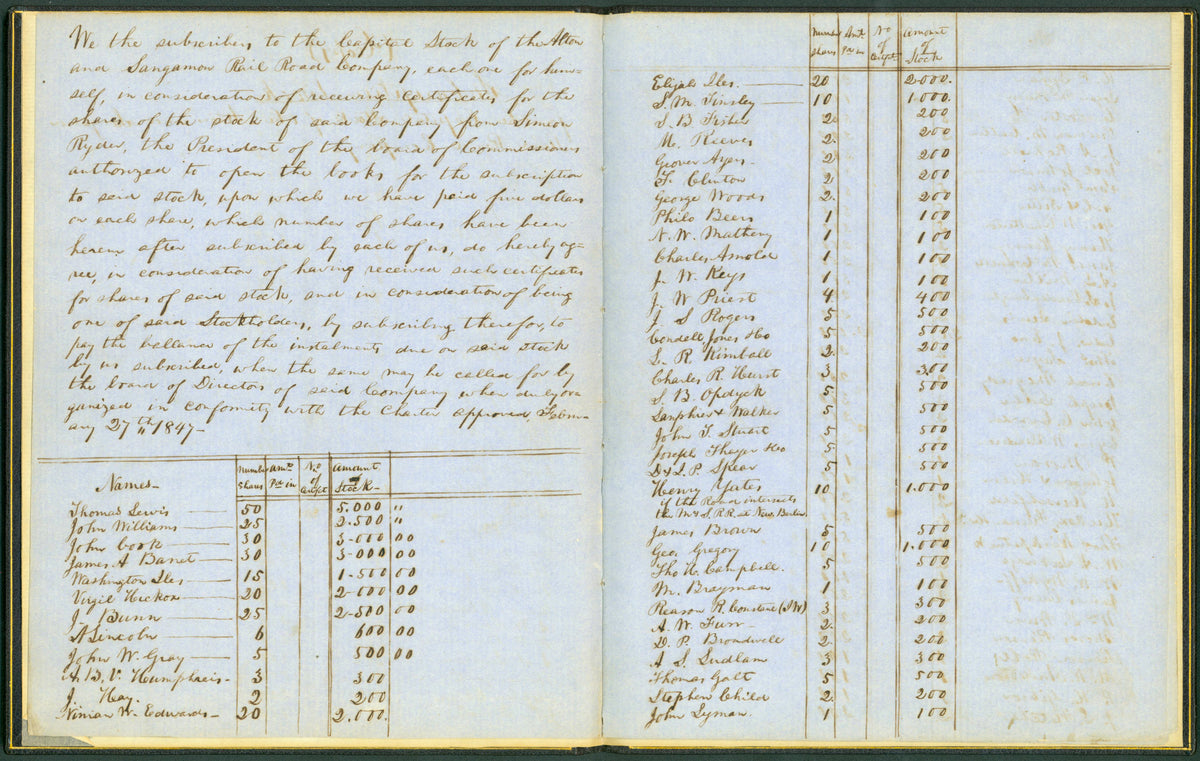 We the subscribers to the Capital Stock of the Alton
and Sangamon Rail Road Company, each one for him-
self, in consideration of receiving certificates for the
shares of the stock of said Company from Simeon
Ryder, the President of the board of Commissioners
authorized to open the books for the subscription
to said stock, upon which we have paid five dollars
on each share, which number of shares have been
herein after subscribed by each of us, do hereby ag-
ree, in consideration of having received such certificates
for shares of said stock, and in consideration of being
one of said Stockholders, by subscribing therefor, to
pay the ballance of the instalments due on said stock
by us subscribed, when the same may be called for by
the board of Directors of said Company when duly or-
ganized in conformity with the Charter approved, Febru-
ary 27th 1847-
Names- Number shares Amt Pd in No of Certft Amount of Stock-
Thomas Lewis 50 5.000 "
John Williams 25 2.500 "
John Cook 30 3-000 00
James A Barret 30 3-000 00
Washington Iles 15 1-500 00
Virgil Hickox 20 2-000 00
J. Bunn 25 2-500 00
A Lincoln 6 600 00
John W. Gray 5 500 00
A. B. V. Humphreis- 3 300
J. Hay. 2 200
Ninian W. Edwards- 20 2.000.
Number shares Amt Pd in No of Certft Amount of Stock
Elijah Iles. 20 2.000.
S. M. Tinsley 10 1.000.
S. B Fisher 2. 200
M. Reeves 2. 200
Grover Ayers- 2 200
F. Clinton 2 200
George Woods 2. 200
Philo Beers 1 100
N. W. Matheny 1 100
Charles Arnold 1 100
J. W. Keys 1. 100
J. W Priest 4. 400
J. S Rogers 5 500
Condell Jones & Co 5 500
L. R Kimball 2. 200
Charles R. Hurst 3. 300
S. B. Opdyck 5 500
Lanphier & Walker 5 500
John T. Stuart 5 500
Joseph Thayer & Co 5 500
D & I. P. Spear 5 500
Henry Yates 10 1.000
if the Road intersects
the M & S. R.R. at New Berlin
James Brown 5 500
Geo. Gregory 10 1.000
Tho H. Campbell. 5 500
M. Brayman 1 100
Reason R. Constant (I W) 3 300
A. W. Furr- 2. 200
D. P. Broadwell 2. 200
A S. Ludlam 3 300
Thomas Galt 5 500
Stephen Child 2. 200
John Lyman. 1 100